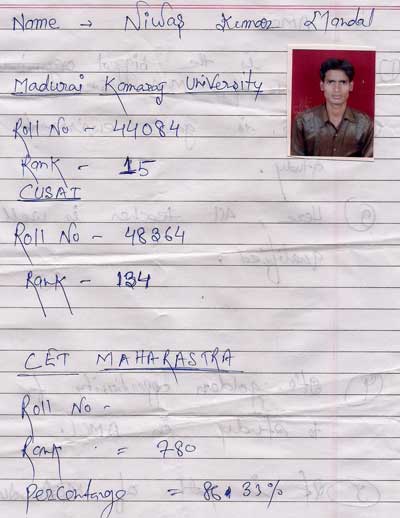 Name → Niwas Kumar Mandal
Madurai Kamaraj University
Roll No - 44084
Rank - 15
CUSAT
Roll No - 48364
Rank - 134
CET MAHARASTRA
Roll No -
Rank = 780
Percentange = 86.33%